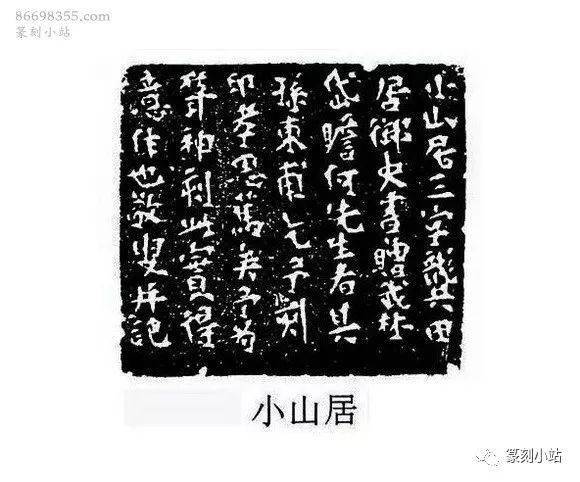 86698355.com
篆刻小站
小山居三字龔田
居御史書贈我林
岱瞻何先生者其
孫東甫乞予刻
印孝思篤矣予為
聳神刻此實得
意作也敬叟并記
小山居
篆刻小站